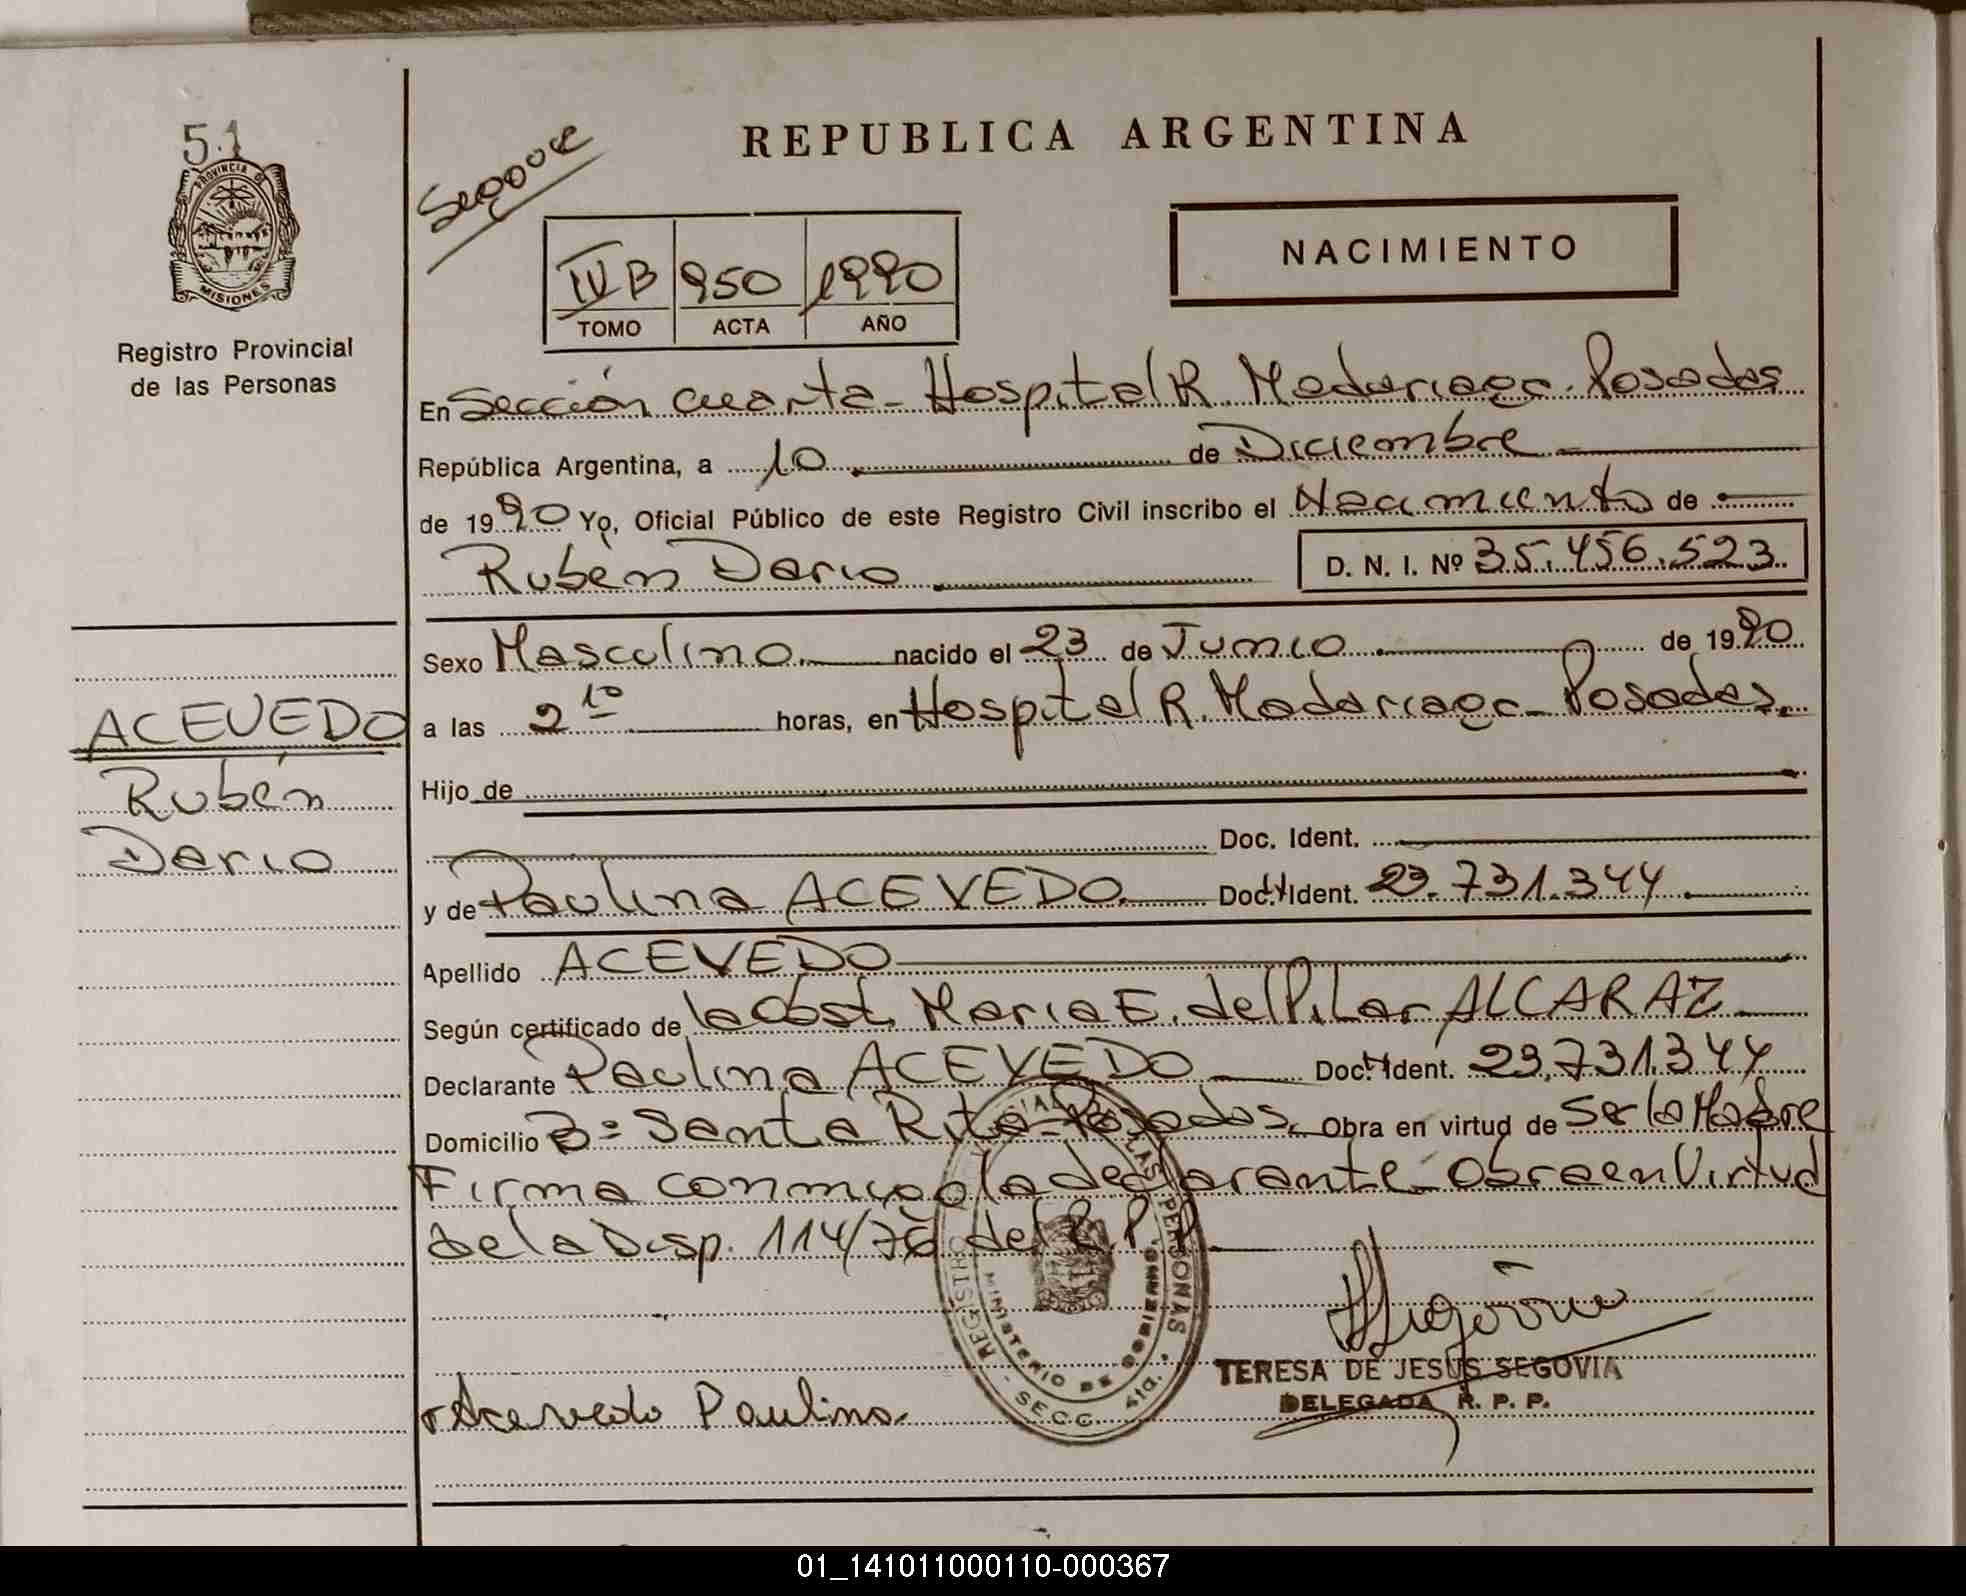 51
PROVINCIA DE
MISIONES
Registro Provincial
de las Personas
REPUBLICA ARGENTINA
IV B 950 1990
TOMO ACTA AÑO
NACIMIENTO
En Sección cuarta - Hospital R. Madariaga - Posadas
República Argentina, a 10 de Diciembre
de 1990 Yo, Oficial Público de este Registro Civil inscribo el Nacimiento de
Rubén Dario D. N. I. Nº 35.456.523
Sexo Masculino nacido el 23 de Junio de 1990
a las 2 10 horas, en Hospital R. Madariaga - Posadas.
Hijo de
Doc. Ident.
y de Paulina ACEVEDO Doc. Ident. 23.731.344
Apellido ACEVEDO
Según certificado de la Obst. Maria E. del Pilar ALCARAZ
Declarante Paulina ACEVEDO Doc. Ident. 23.731.344
Domicilio Bº Santa Rita - Posadas. Obra en virtud de Ser la Madre
Firma conmigo la declarante - Obra en Virtud
de la Disp. 114/76 del R.P.P.
ACEVEDO
Rubén
Dario
REGISTRO PROVINCIAL DE LAS PERSONAS
MINISTERIO DE GOBIERNO
SECC. 4ta.
TERESA DE JESUS SEGOVIA
DELEGADA R. P. P.
Acevedo Paulina
01_141011000110-000367